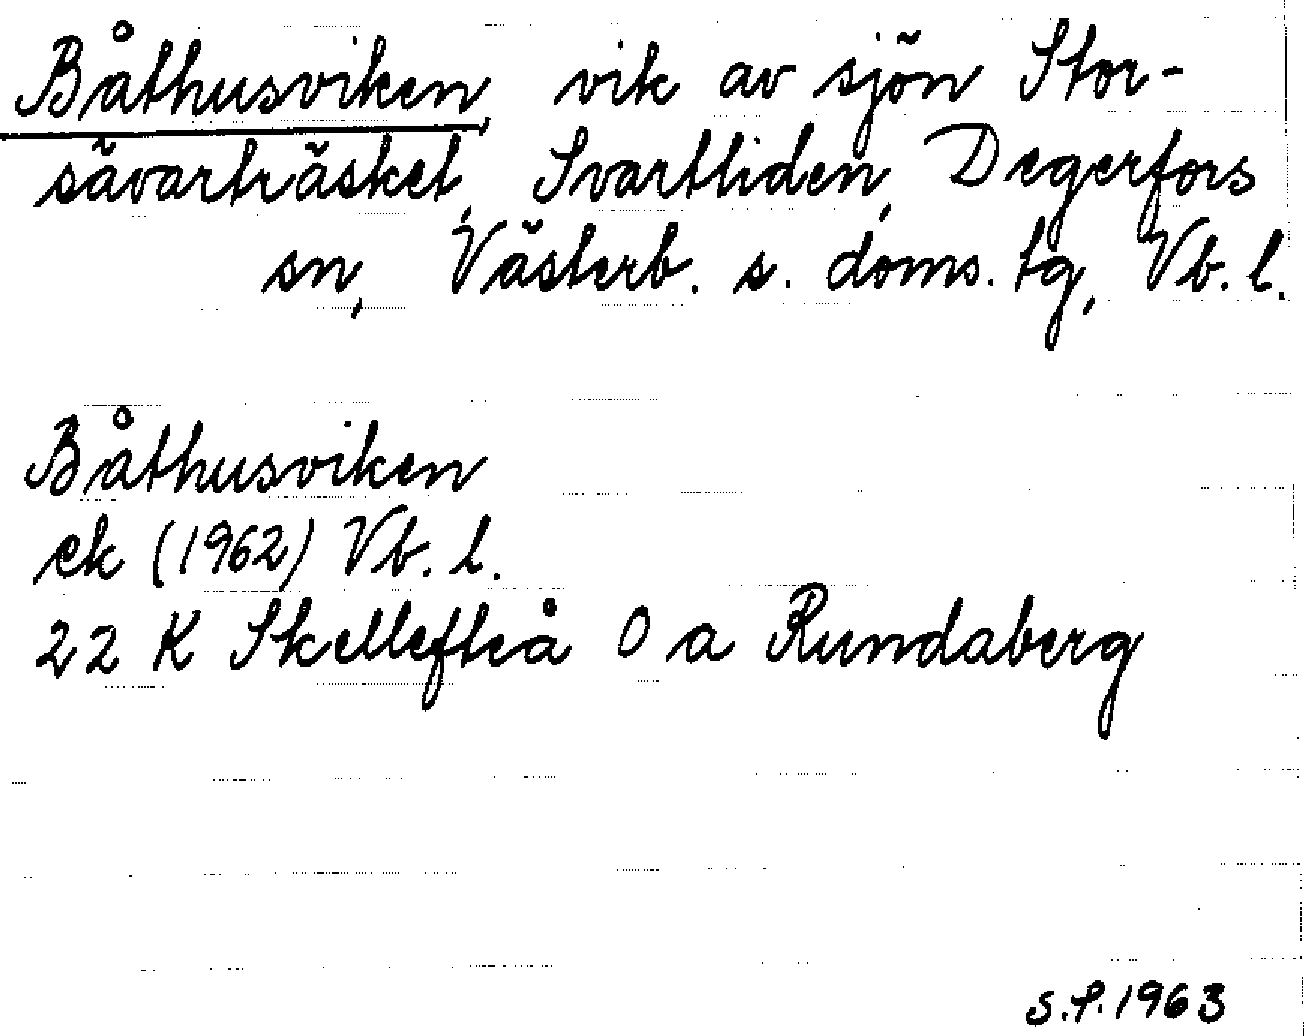 Båthusviken, vik av sjön Stor-
sävarträsket, Svartliden, Degerfors
sn, Västerb. s. doms. tg, Vb. l.
Båthusviken
ek (1962) Vb. l.
22 K Skellefteå 0 a Rundaberg
S.P. 1963